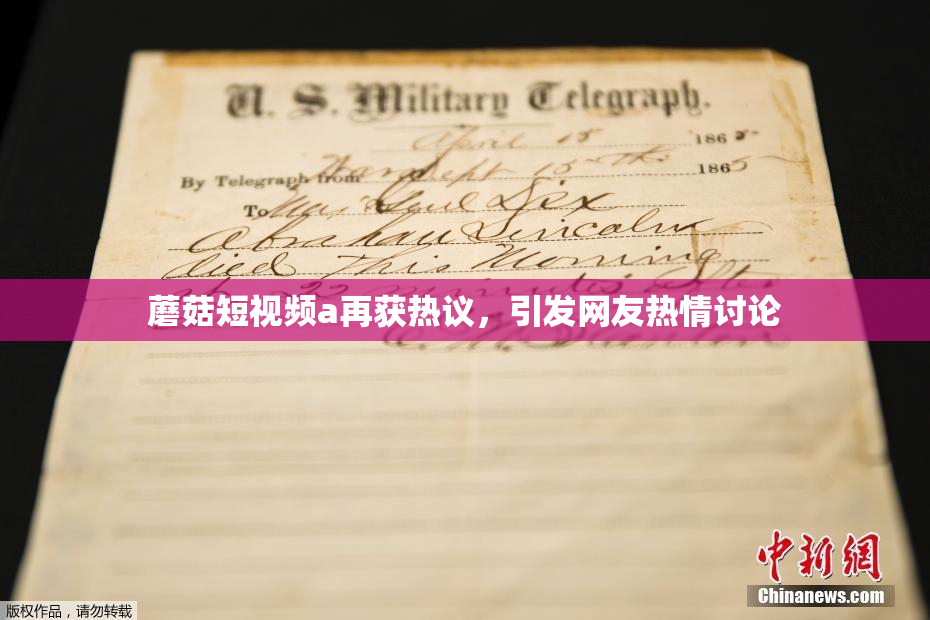 U. S. Military Telegraph.
April 15 1865
By Telegraph from War Dept 15th 1865
To Maj Genl Dix
Abraham Lincoln
died This Morning
at 22 minutes after
蘑菇短视频a再获热议，引发网友热情讨论
中新网
Chinanews.com
版权作品，请勿转载